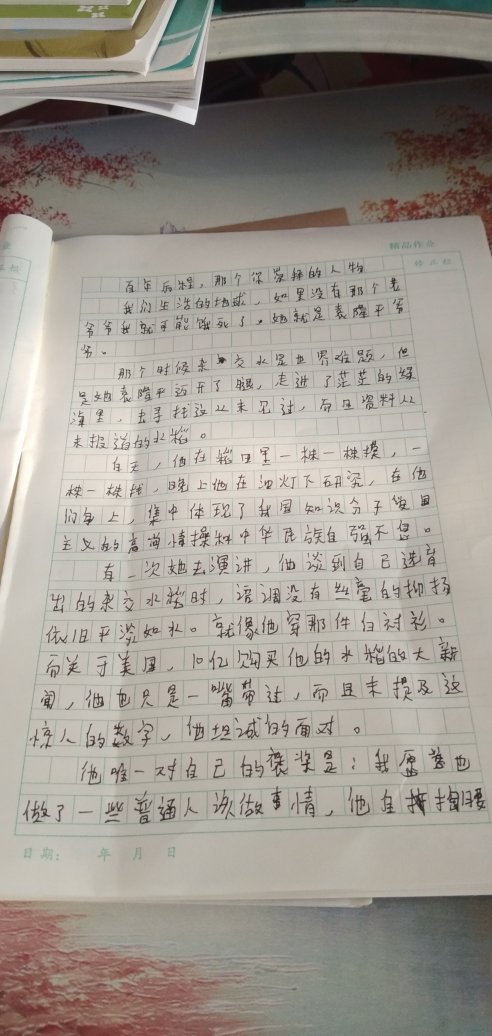 精品作业
百年历程，那个你崇拜的人物
我们生活的地球，如果没有那个老
爷爷我就可能饿死了。她就是袁隆平爷
爷。
那个时候杂交水是世界难题，但
是她袁隆平迈开了腿，走进了茫茫的绿
海里，去寻找这从未见过，而且资料从
未报道的水稻。
白天，他在稻田里一株一株摸，一
株一株找，晚上他在油灯下研究，在他
们身上，集中体现了我国知识分子爱国
主义的高尚情操和中华民族自强不息。
有一次她去演讲，他谈到自己选育
出的杂交水稻时，语调没有丝毫的抑扬
依旧平淡如水。就像他穿那件白衬衫。
而关于美国，10亿购买他的水稻的大新
闻，他也只是一嘴带过，而且未提及这
惊人的数字，他坦诚的面对。
他唯一对自己的褒奖是：我愿意也
做了一些普通人该做事情，他自
日期： 年 月 日